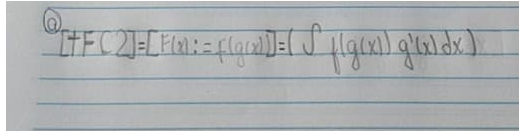 ⓐ [TFC2]=[F(x):=f(g(x))]=(∫ f(g(x)) g'(x) dx)